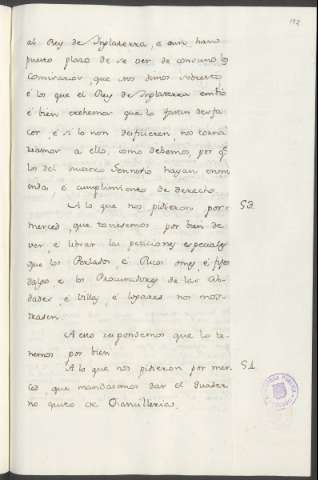 132
al Rey de Inglaterra, e aun havia
puesto plazo de se ver de consuno los
Comisarios, que nos dimos sobresto
e los que el Rey de Inglaterra embió
é bien crehemos que lo faran desfa-
cer, é si lo non desficieren, nos torna-
reamor a ello, como debemos, por q.e
los del nuestro Sennorio hayan enm-
ienda e cumplimiento de derecho.
A lo que nos pidieron por 53
merced, que toviesemos por bien de
ver, é librar las peticiones especiales
que los Perlados, e Ricos omes, é fijos
dalgo e los Procuradores de las Cib-
dades é Villas, é Lugares nos mos-
trasen.
A esto respondemos que lo te-
nemos por bien
A lo que nos pidieron por mer- 54
ced que mandasemos dar el Quader-
no quito de Chancilleria.